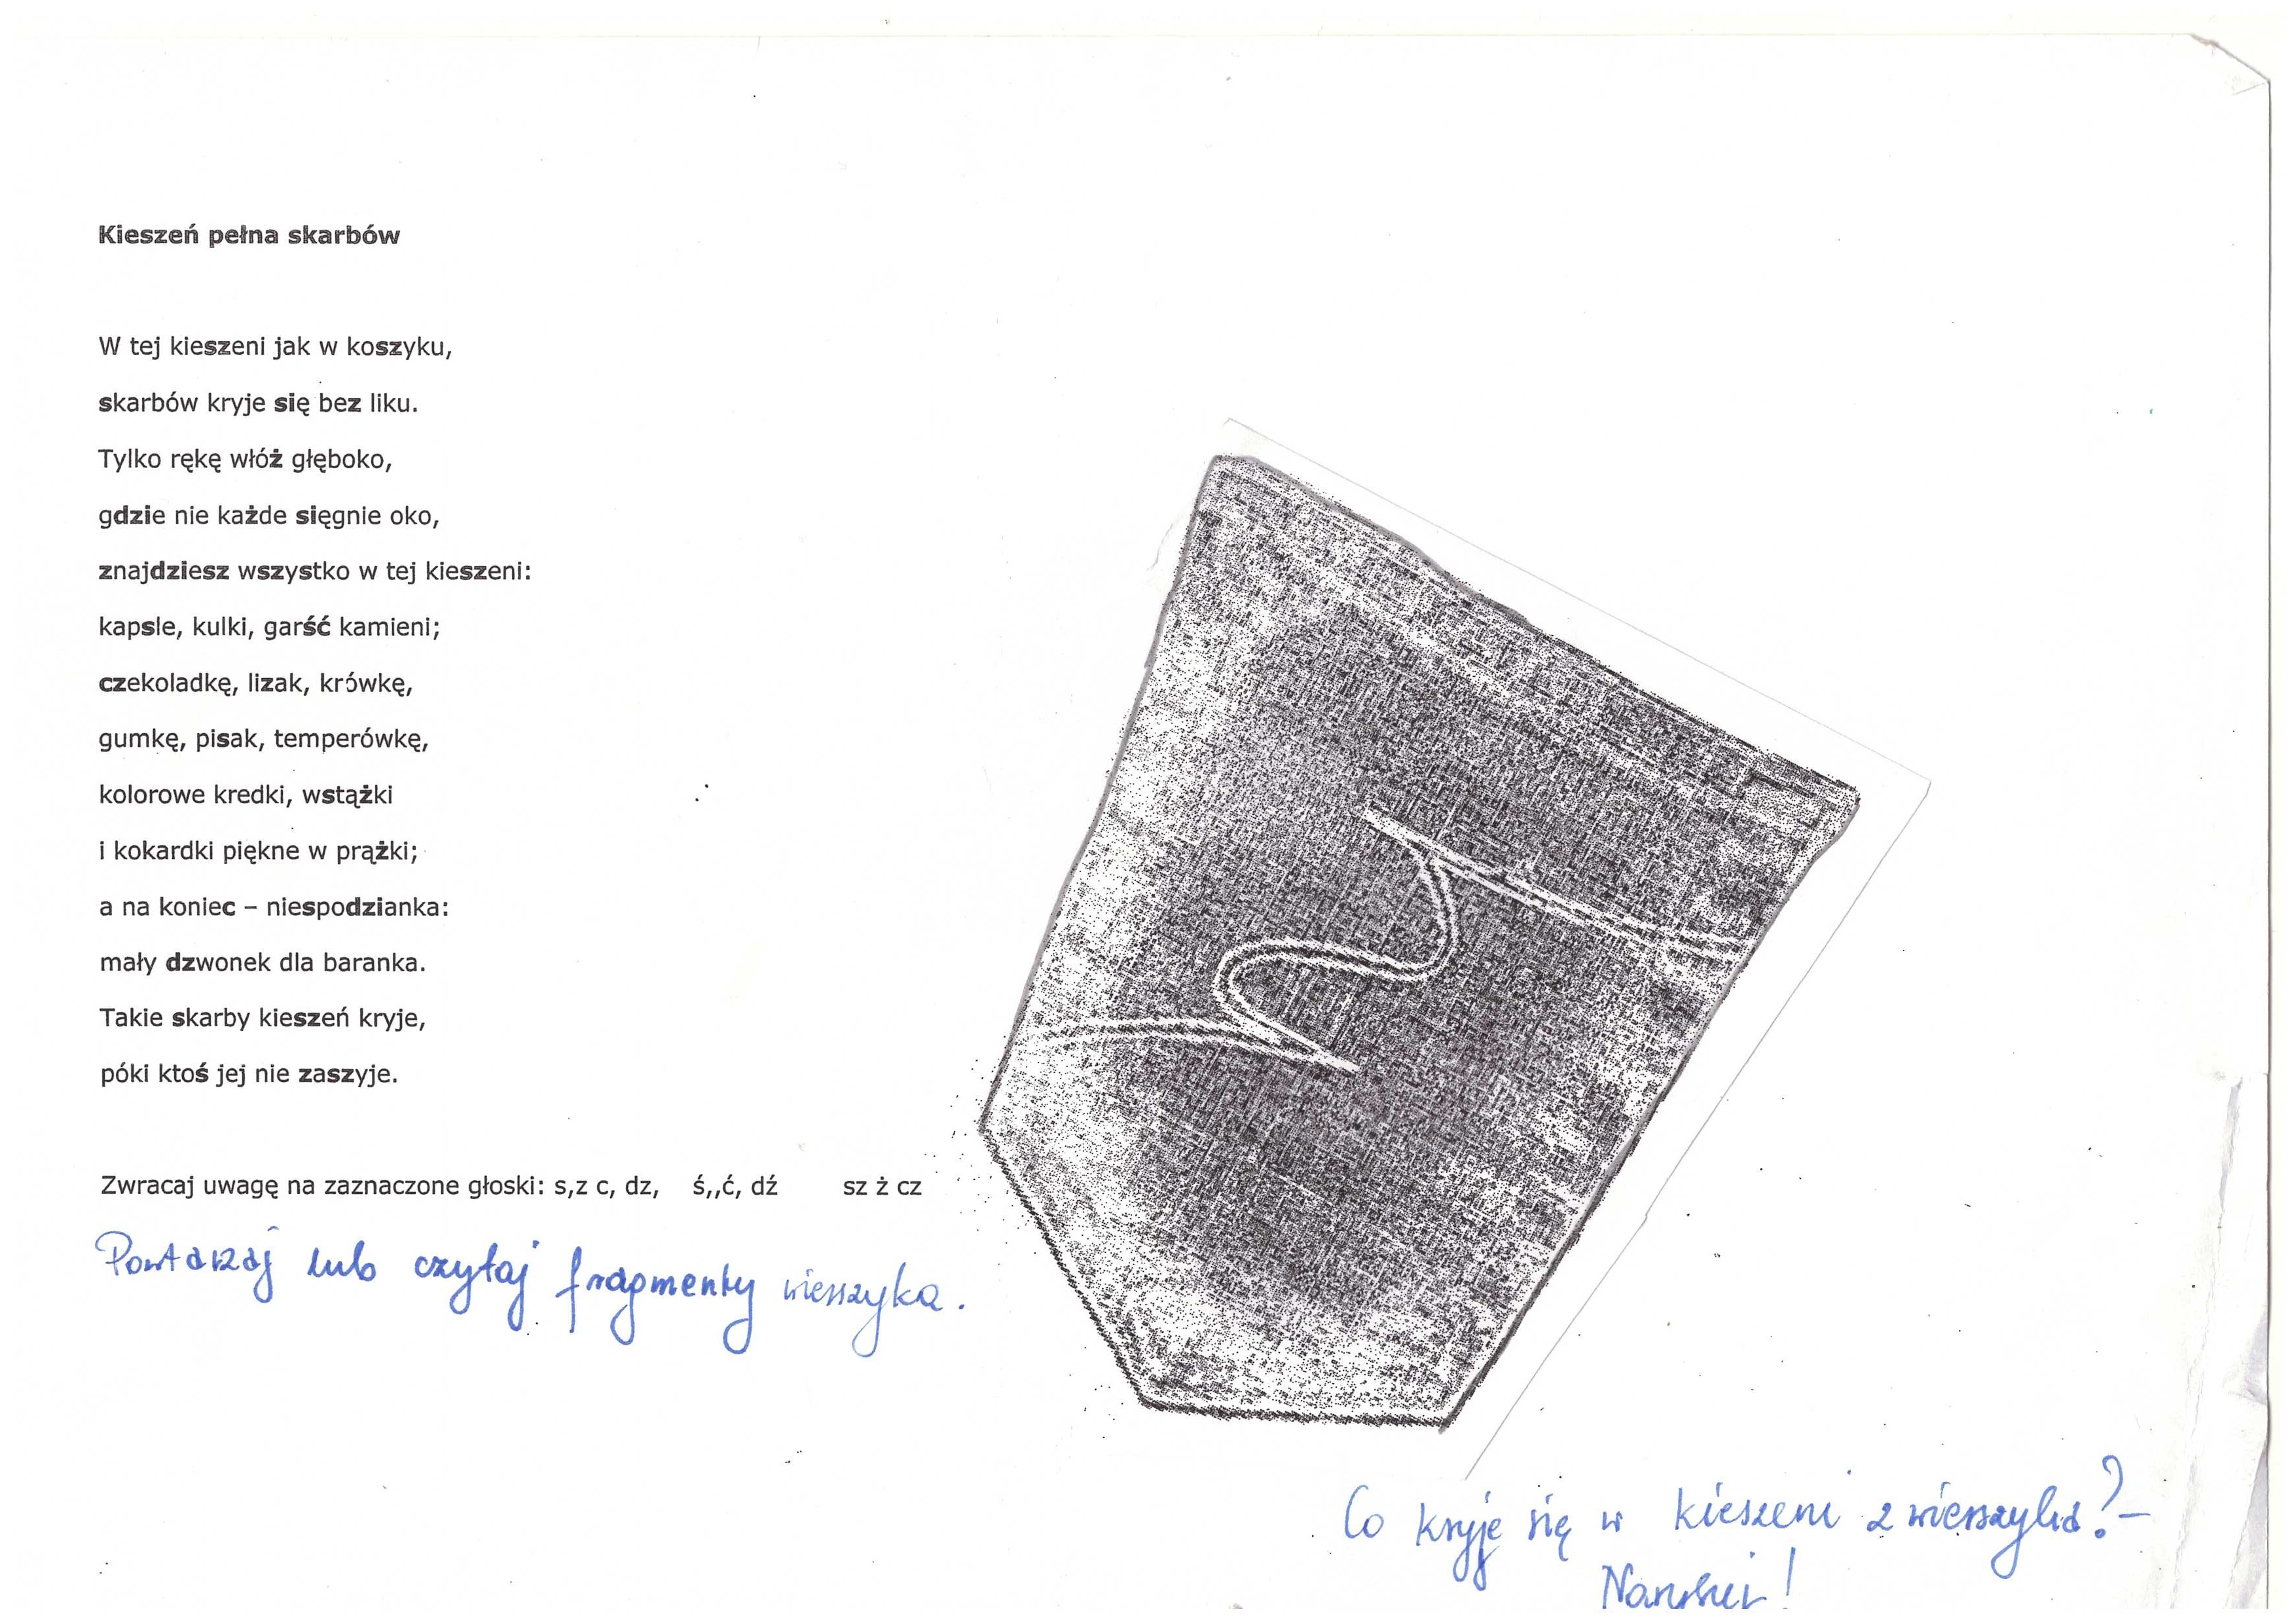 Kieszeń pełna skarbów
W tej kieszeni jak w koszyku,
skarbów kryje się bez liku.
Tylko rękę włóż głęboko,
gdzie nie każde sięgnie oko,
znajdziesz wszystko w tej kieszeni:
kapsle, kulki, garść kamieni;
czekoladkę, lizak, krówkę,
gumkę, pisak, temperówkę,
kolorowe kredki, wstążki
i kokardki piękne w prążki;
a na koniec – niespodzianka:
mały dzwonek dla baranka.
Takie skarby kieszeń kryje,
póki ktoś jej nie zaszyje.
Zwracaj uwagę na zaznaczone głoski: s,z c, dz, ś,,ć, dź sz ż cz
Powtarzaj lub czytaj fragmenty wierszyka.
Co kryje się w kieszeni z wierszyka? –
Narysuj!